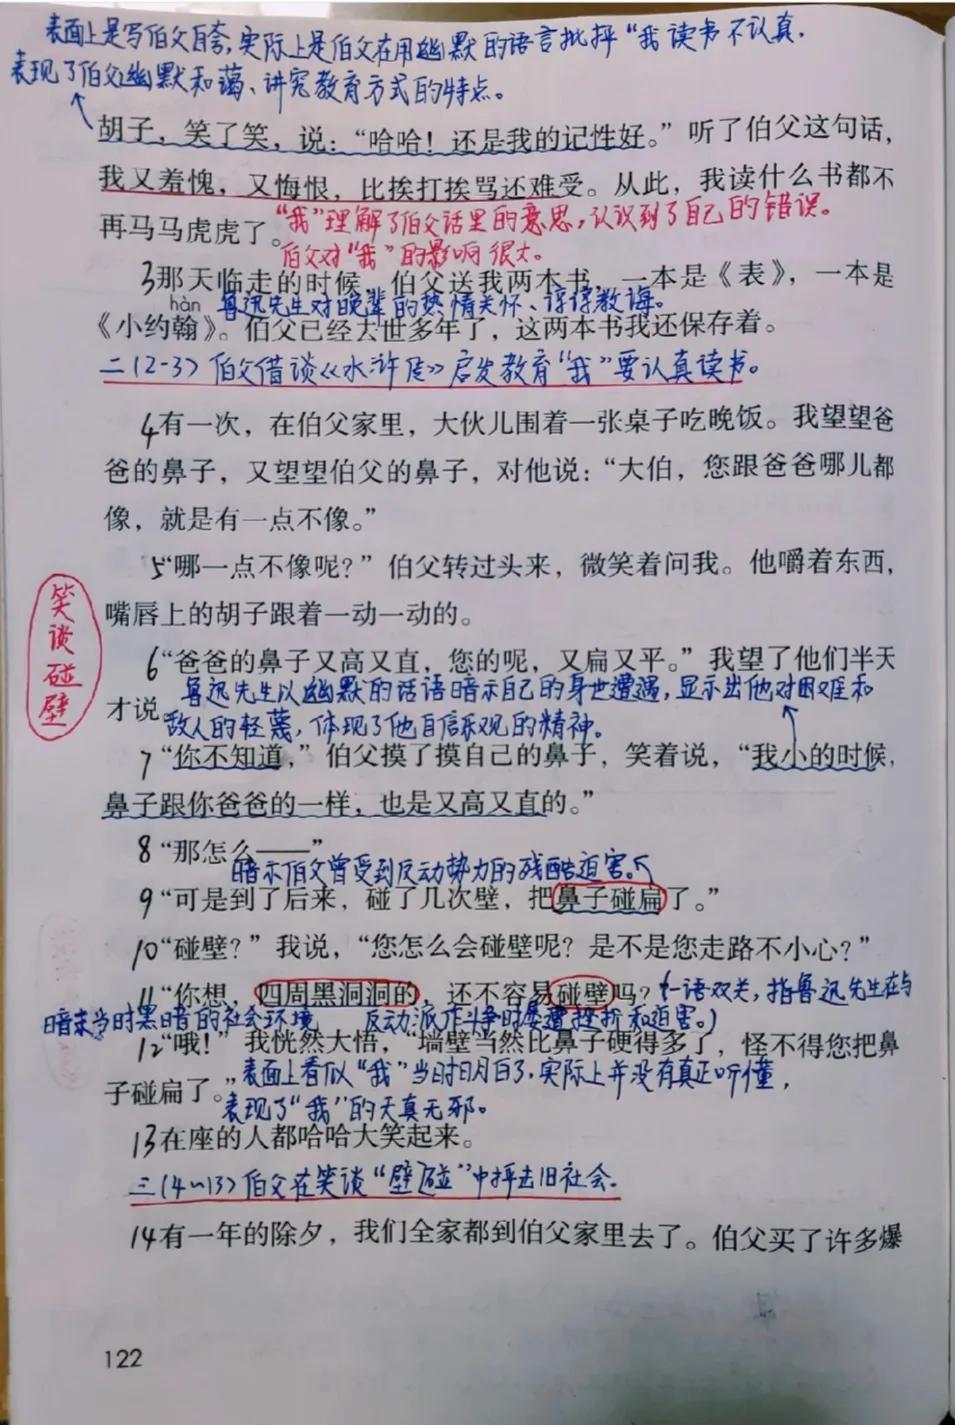 表面上是写伯父自夸,实际上是伯父在用幽默的语言批评“我读书不认真,
表现了伯父幽默和蔼、讲究教育方式的特点。
胡子，笑了笑，说：“哈哈！还是我的记性好。”听了伯父这句话，
我又羞愧，又悔恨，比挨打挨骂还难受。从此，我读什么书都不
再马马虎虎了。
“我”理解了伯父话里的意思,认识到了自己的错误。
伯父对“我”的影响很大。
3那天临走的时候，伯父送我两本书，一本是《表》，一本是
hàn
鲁迅先生对晚辈的热情关怀、谆谆教诲。
《小约翰》。伯父已经去世多年了，这两本书我还保存着。
二(2-3)伯父借谈《水浒传》启发教育“我”要认真读书。
4有一次，在伯父家里，大伙儿围着一张桌子吃晚饭。我望望爸
爸的鼻子，又望望伯父的鼻子，对他说：“大伯，您跟爸爸哪儿都
像，就是有一点不像。”
5“哪一点不像呢？”伯父转过头来，微笑着问我。他嚼着东西，
嘴唇上的胡子跟着一动一动的。
笑谈碰壁
6“爸爸的鼻子又高又直，您的呢，又扁又平。”我望了他们半天
才说。
鲁迅先生以幽默的话语暗示自己的身世遭遇,显示出他对困难和
敌人的轻蔑,体现了他自信乐观的精神。
7“你不知道，”伯父摸了摸自己的鼻子，笑着说，“我小的时候，
鼻子跟你爸爸的一样，也是又高又直的。”
8“那怎么——”
暗示伯父曾受到反动势力的残酷迫害。
9“可是到了后来，碰了几次壁，把鼻子碰扁了。”
10“碰壁？”我说，“您怎么会碰壁呢？是不是您走路不小心？”
11“你想，四周黑洞洞的，还不容易碰壁吗？
(一语双关,指鲁迅先生在与
反动派作斗争时屡遭挫折和迫害。)
暗示当时黑暗的社会环境
12“哦！”我恍然大悟，“墙壁当然比鼻子硬得多了，怪不得您把鼻
子碰扁了。”
表面上看似“我”当时明白了,实际上并没有真正听懂,
表现了“我”的天真无邪。
13在座的人都哈哈大笑起来。
三(4~13)伯父在笑谈“壁碰”中抨击旧社会.
14有一年的除夕，我们全家都到伯父家里去了。伯父买了许多爆
122